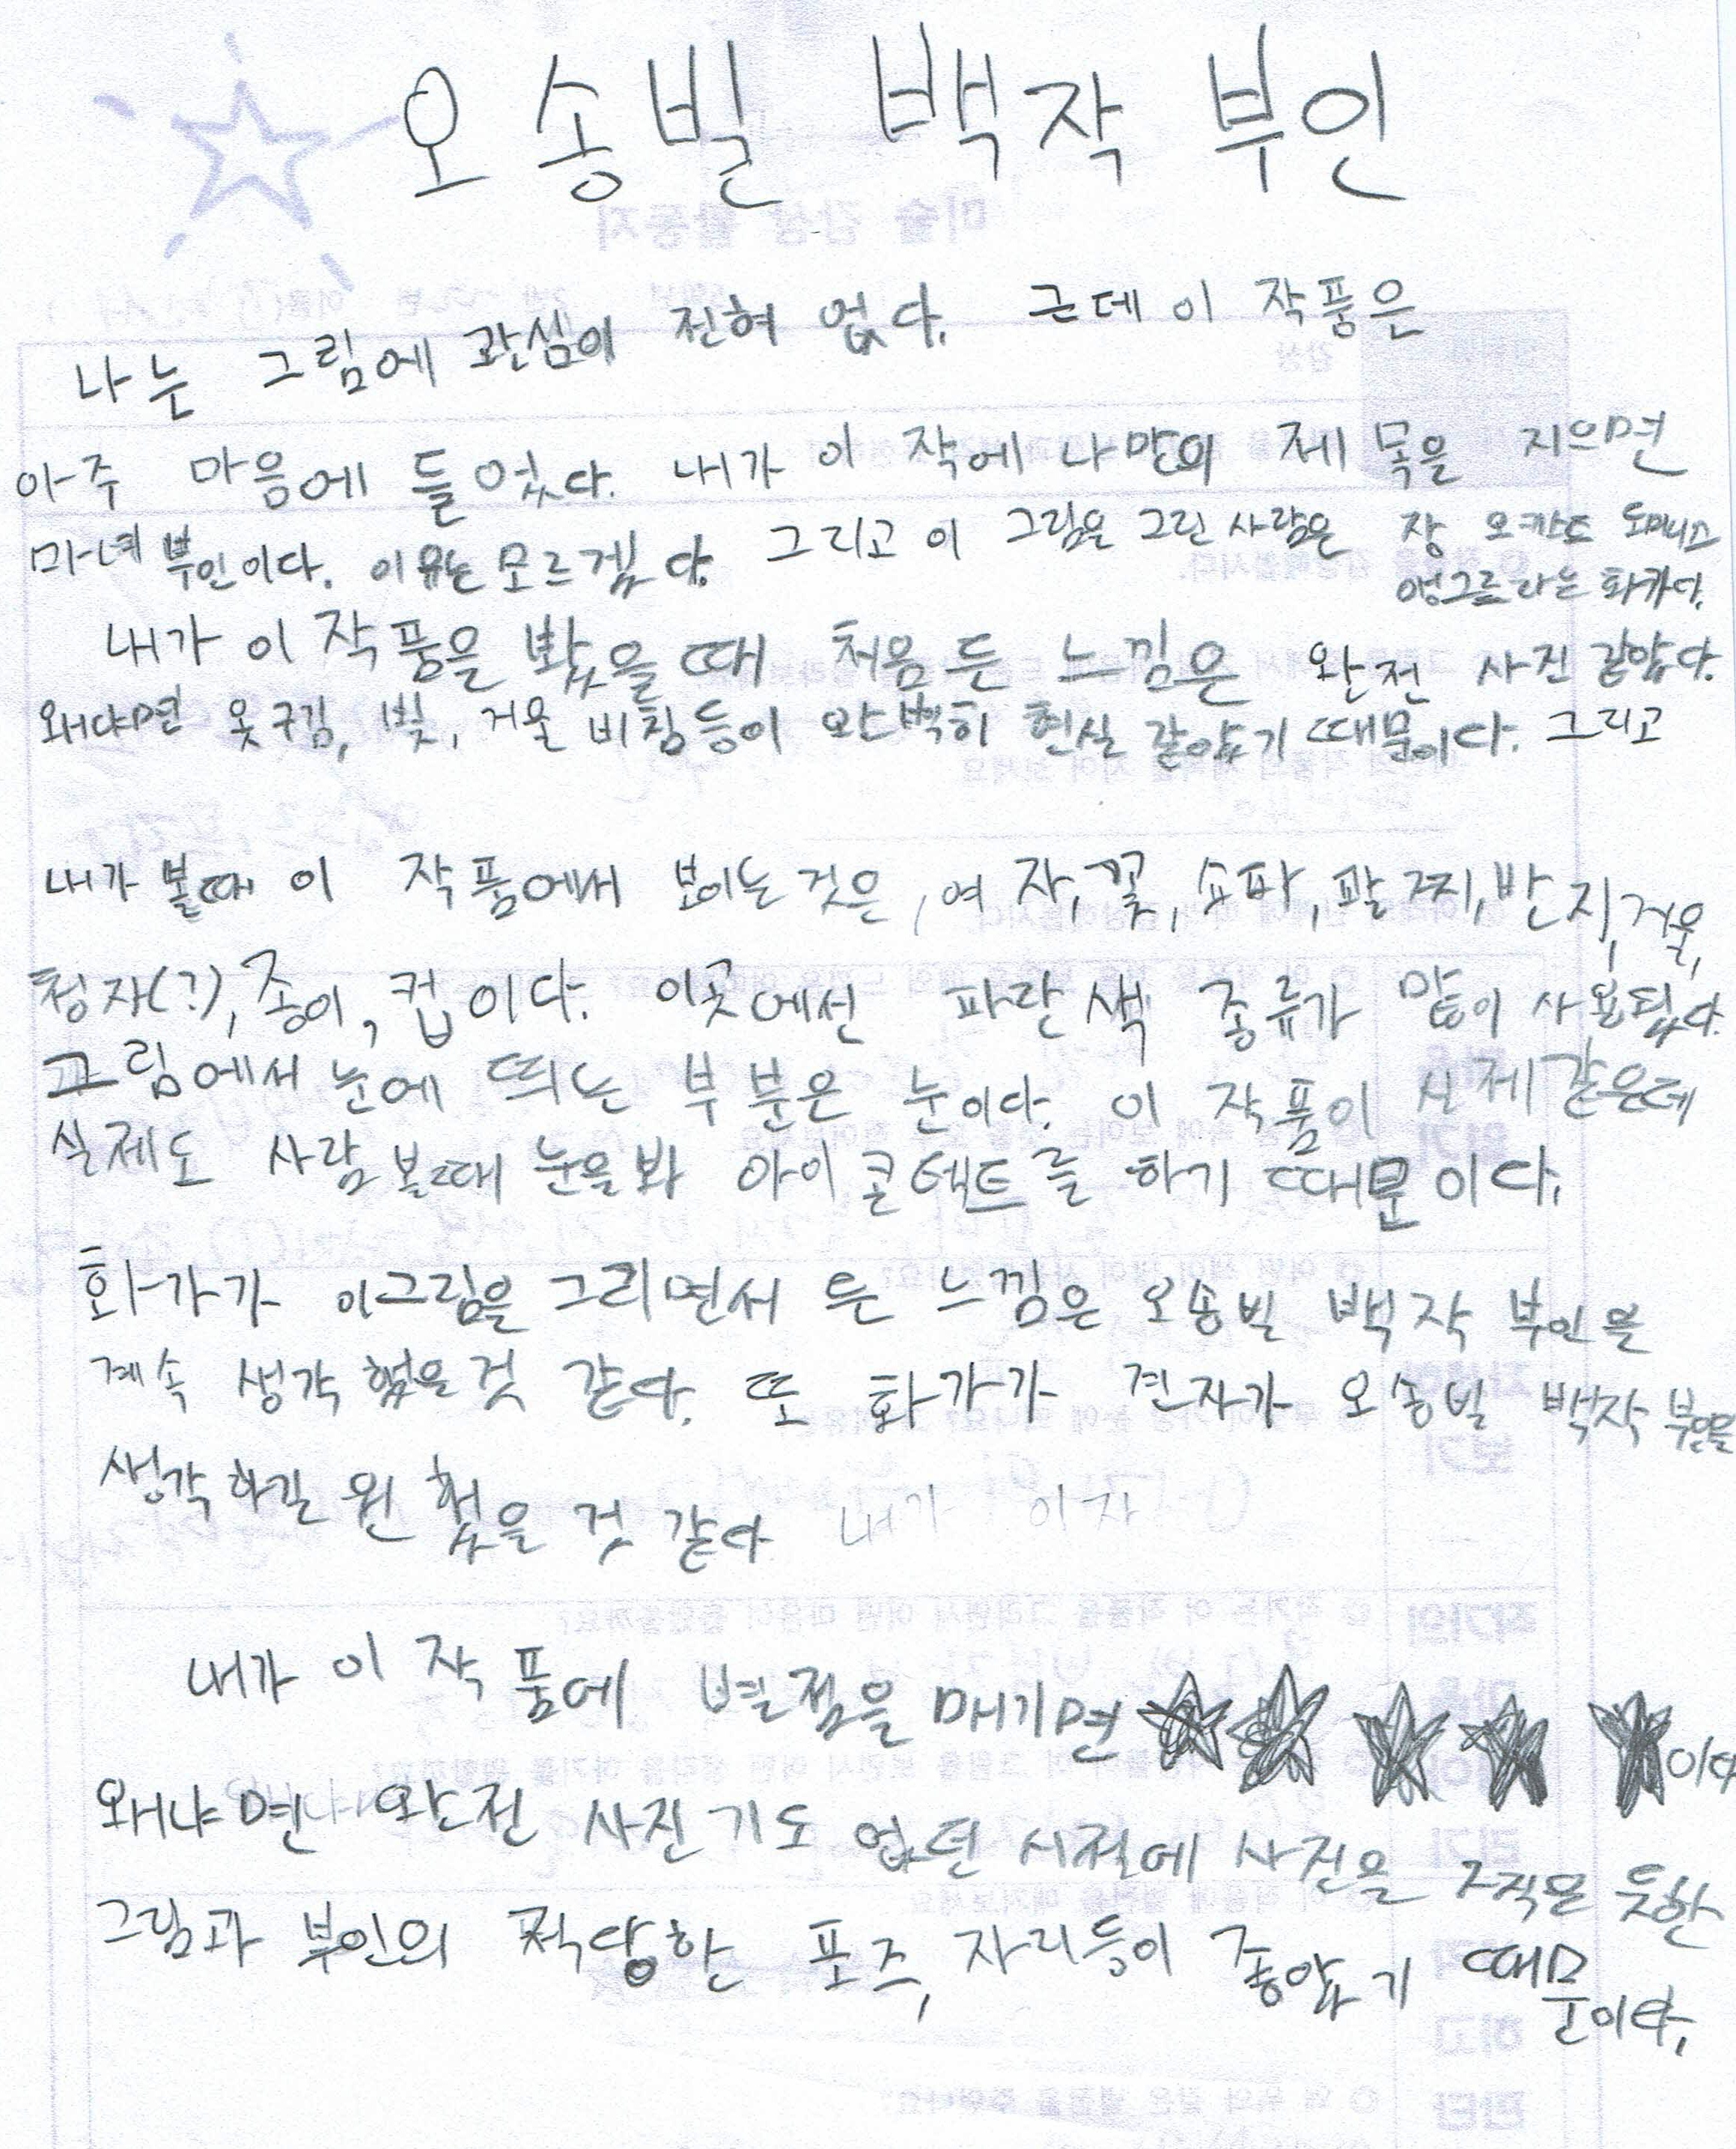 오송빌 백작 부인
나는 그림에 관심이 전혀 없다. 근데 이 작품은
아주 마음에 들었다. 내가 이 작에 나만의 제목을 지으면
마녀 부인이다. 이유는 모르겠다. 그리고 이 그림을 그린 사람은 장 오귀스트 도미니크
앵그르라는 화가다.
내가 이 작품을 봤을때 처음 든 느낌은 완전 사진 같았다.
왜냐면 옷 구김, 빛, 거울 비침등이 완벽히 현실 같았기 때문이다. 그리고
내가 볼때 이 작품에서 보이는 것은, 여자, 꽃, 쇼파, 팔찌, 반지, 거울,
청자(?), 종이, 컵이다. 이곳에선 파란색 종류가 많이 사용됬다.
그림에서 눈에 띄는 부분은 눈이다. 이 작품이 실제 같은데
실제도 사람 볼때 눈을 봐 아이 콘텍트를 하기 때문이다.
화가가 이그림을 그리면서 든 느낌은 오송빌 백작 부인을
계속 생각 했을 것 같다. 또 화가가 관자가 오송빌 백작 부인을
생각하길 원 했을 것 같다 내가 이 자
내가 이 작품에 별점을 매기면 ★★★★★이다
왜냐면 완전 사진기도 없던 시절에 사진을 찍은 듯한
그림과 부인의 적당한 포즈, 자리등이 좋았기 때문이다.
미술 감상 활동지